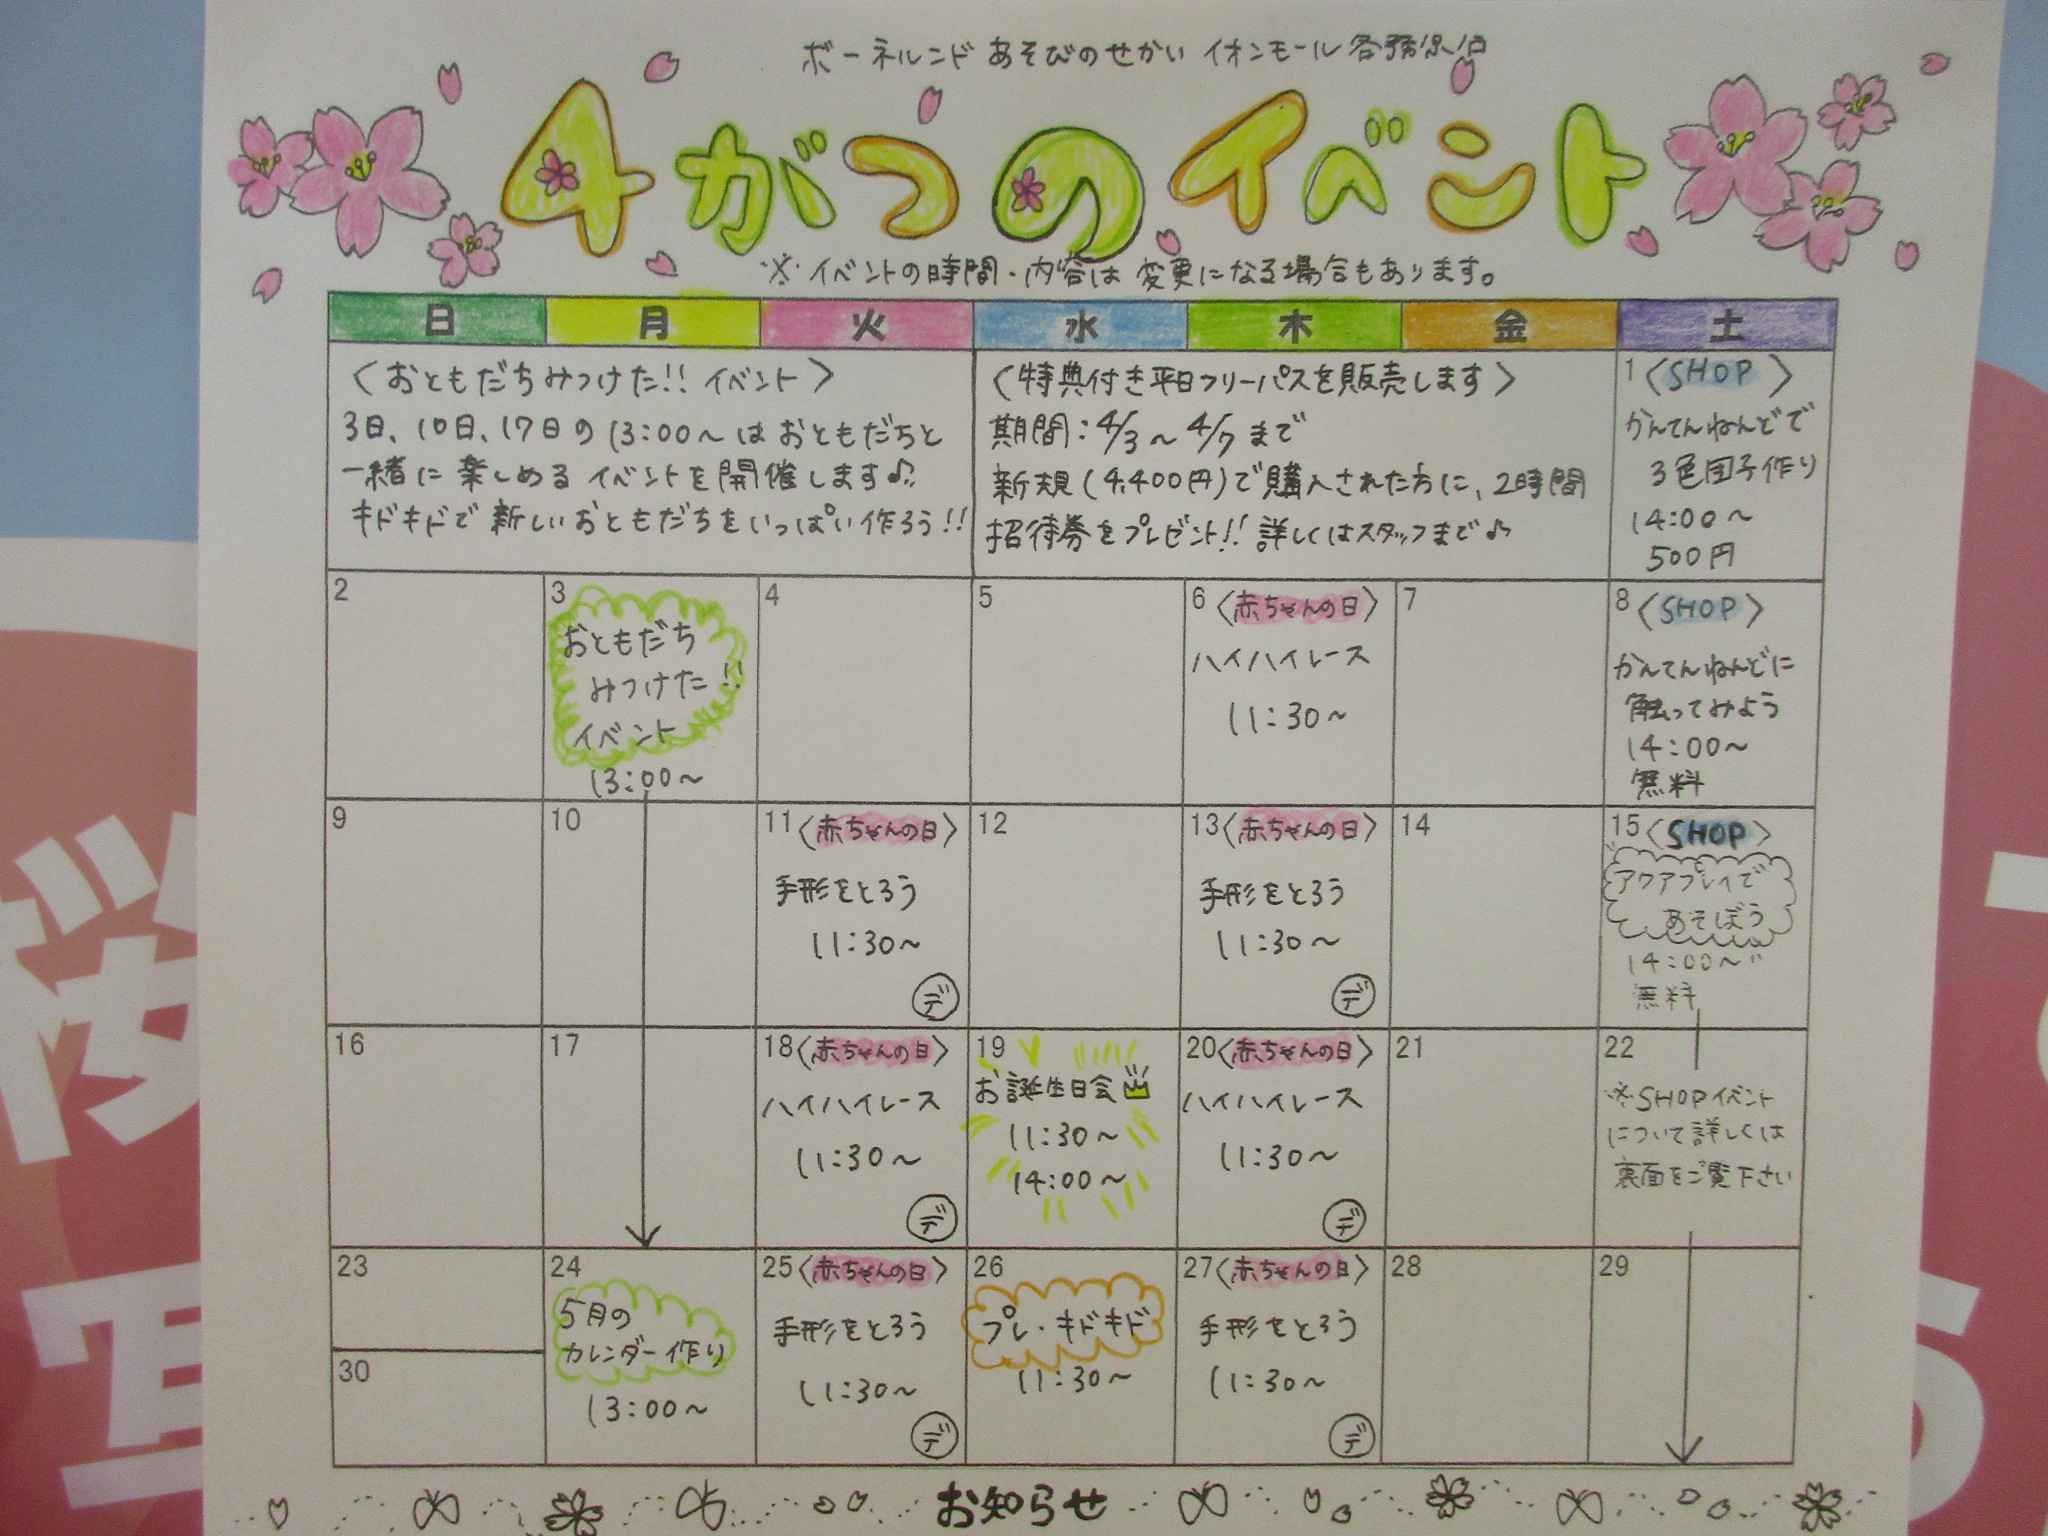 ボーネルンド あそびのせかい イオンモール各務原店
4がつのイベント
※イベントの時間・内容は変更になる場合もあります。
日 月 火 水 木 金 土
〈おともだちみつけた!! イベント〉
3日、10日、17日の13:00〜はおともだちと
一緒に楽しめるイベントを開催します♪
キドキドで新しいおともだちをいっぱい作ろう!!
〈特典付き平日フリーパスを販売します〉
期間:4/3〜4/7まで
新規(4,400円)で購入された方に、2時間
招待券をプレゼント!! 詳しくはスタッフまで♪
1〈SHOP〉
かんてんねんどで
3色団子作り
14:00〜
500円
2
3
おともだち
みつけた!!
イベント
13:00〜
4
5
6〈赤ちゃんの日〉
ハイハイレース
11:30〜
7
8〈SHOP〉
かんてんねんどに
触ってみよう
14:00〜
無料
9
10
11〈赤ちゃんの日〉
手形をとろう
11:30〜
デ
12
13〈赤ちゃんの日〉
手形をとろう
11:30〜
デ
14
15〈SHOP〉
アクアプレイで
あそぼう
14:00〜
無料
16
17
18〈赤ちゃんの日〉
ハイハイレース
11:30〜
デ
19
お誕生日会
11:30〜
14:00〜
20〈赤ちゃんの日〉
ハイハイレース
11:30〜
デ
21
22
※SHOPイベント
について詳しくは
裏面をご覧下さい
23
24
5月の
カレンダー作り
13:00〜
25〈赤ちゃんの日〉
手形をとろう
11:30〜
デ
26
プレ・キドキド
11:30〜
27〈赤ちゃんの日〉
手形をとろう
11:30〜
デ
28
29
30
お知らせ